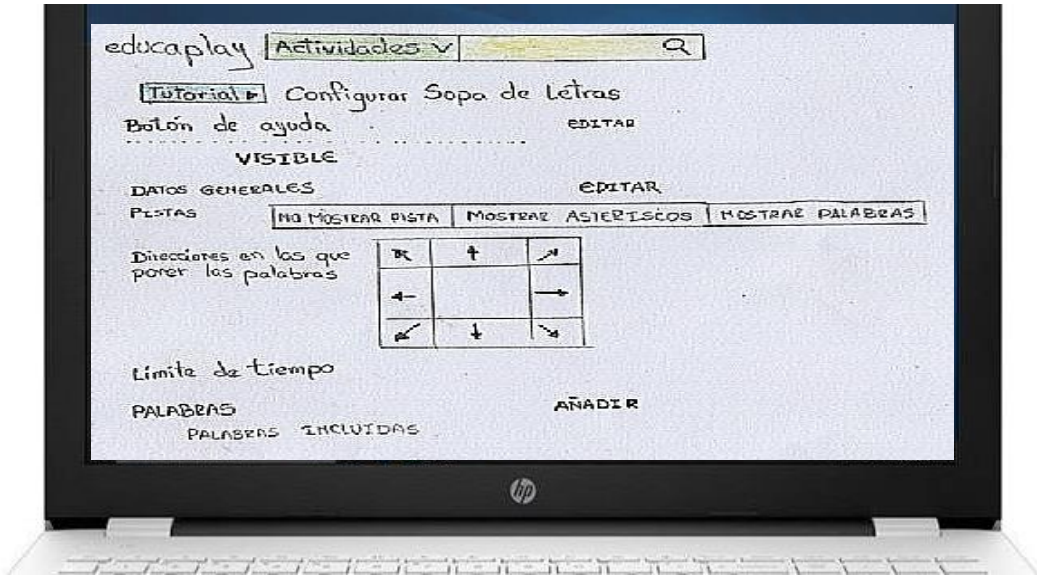 educaplay Actividades
Tutorial Configurar Sopa de Letras
Botón de ayuda EDITAR
VISIBLE
DATOS GENERALES EDITAR
PISTAS NO MOSTRAR PISTA MOSTRAR ASTERISCOS MOSTRAR PALABRAS
Direcciones en las que
poner las palabras
Límite de tiempo
PALABRAS AÑADIR
PALABRAS INCLUIDAS
hp